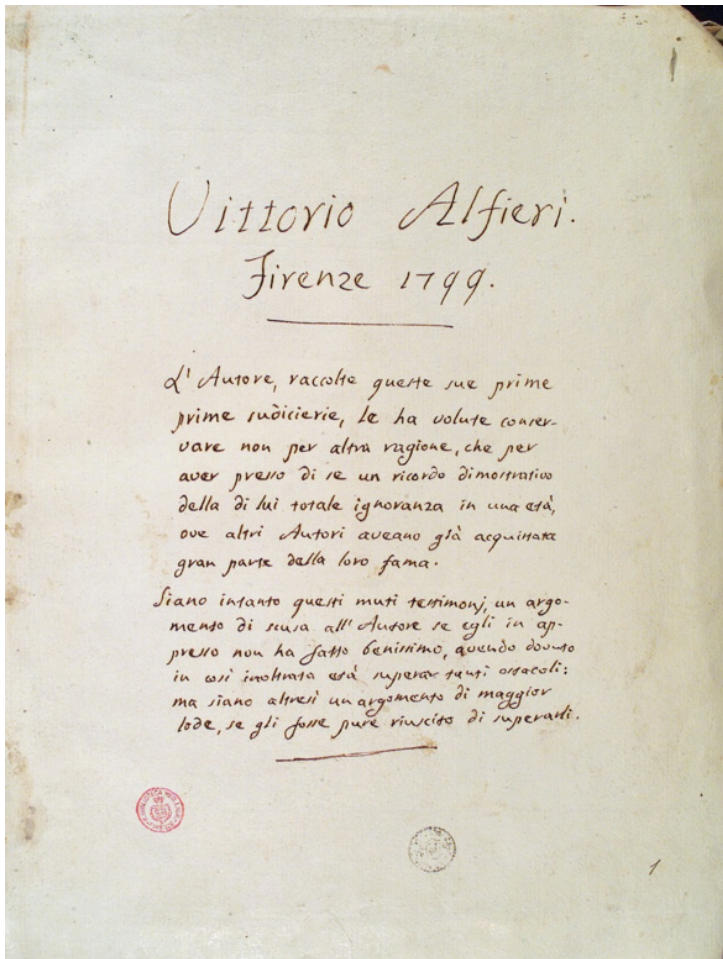 Vittorio Alfieri.
Firenze 1799.
L'Autore, raccolte queste sue prime
prime sudicierie, le ha volute conser-
vare non per altra ragione, che per
aver presso di se un ricordo dimostrativo
della di lui totale ignoranza in una età,
ove altri Autori aveano già acquistata
gran parte della loro fama.
Siano intanto questi muti testimonj, un argo-
mento di scusa all'Autore se egli in ap-
presso non ha fatto benissimo, avendo dovuto
in così inoltrata età superar tanti ostacoli:
ma siano altresì un argomento di maggior
lode, se gli fosse pure riuscito di superarli.
1